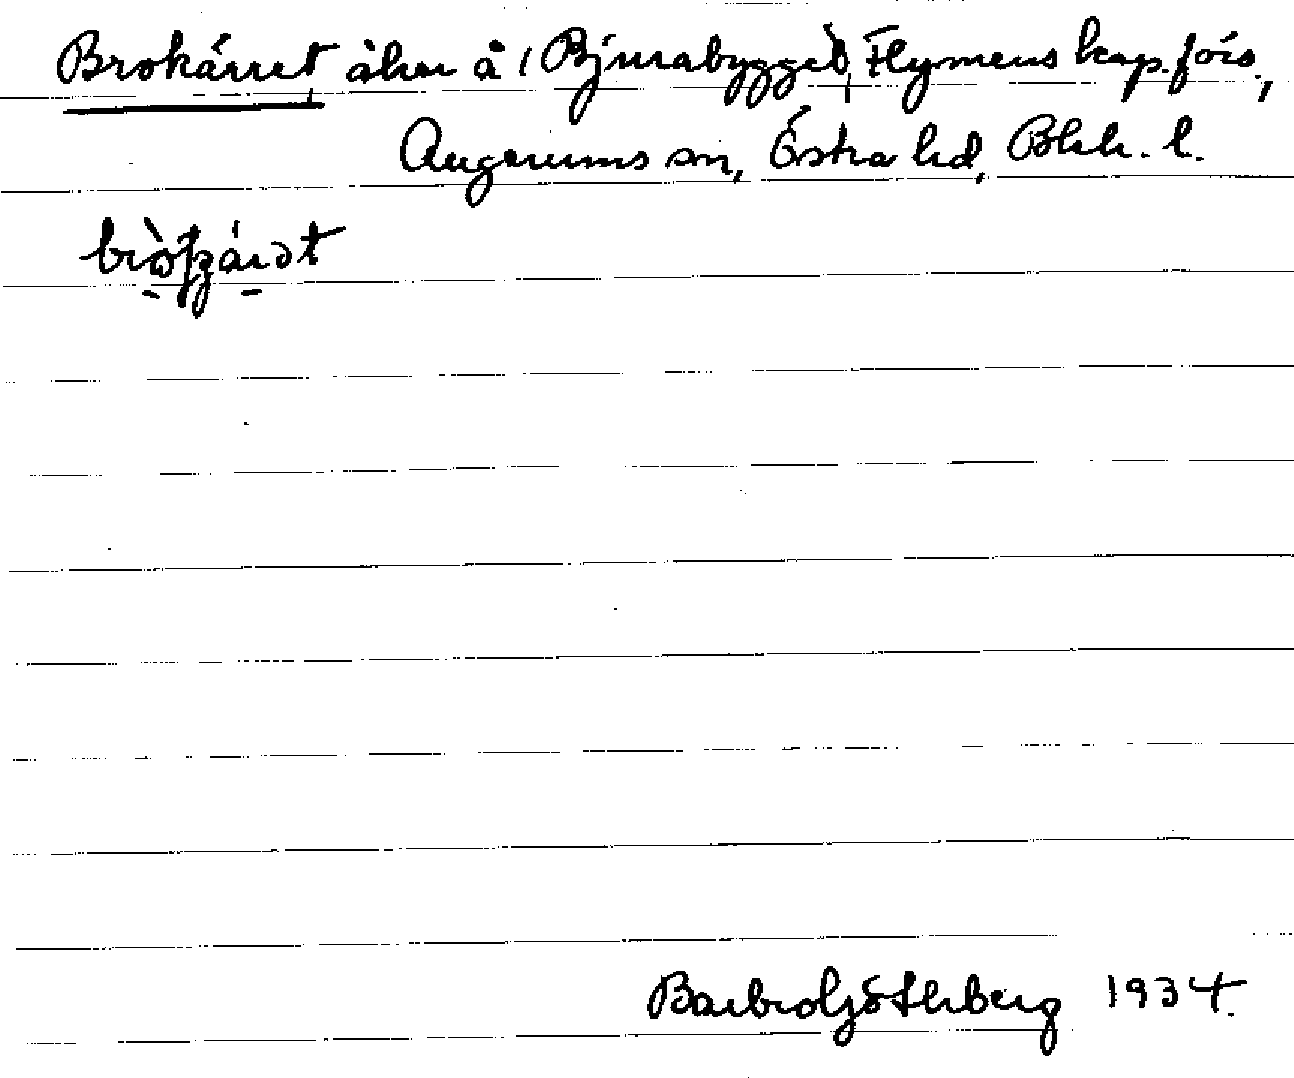 Brokärret åker å Bjurabygget, Flymens kap.förs.,
Augerums sn, Östra hd, Blek. l.
Barbro Götherberg 1934.